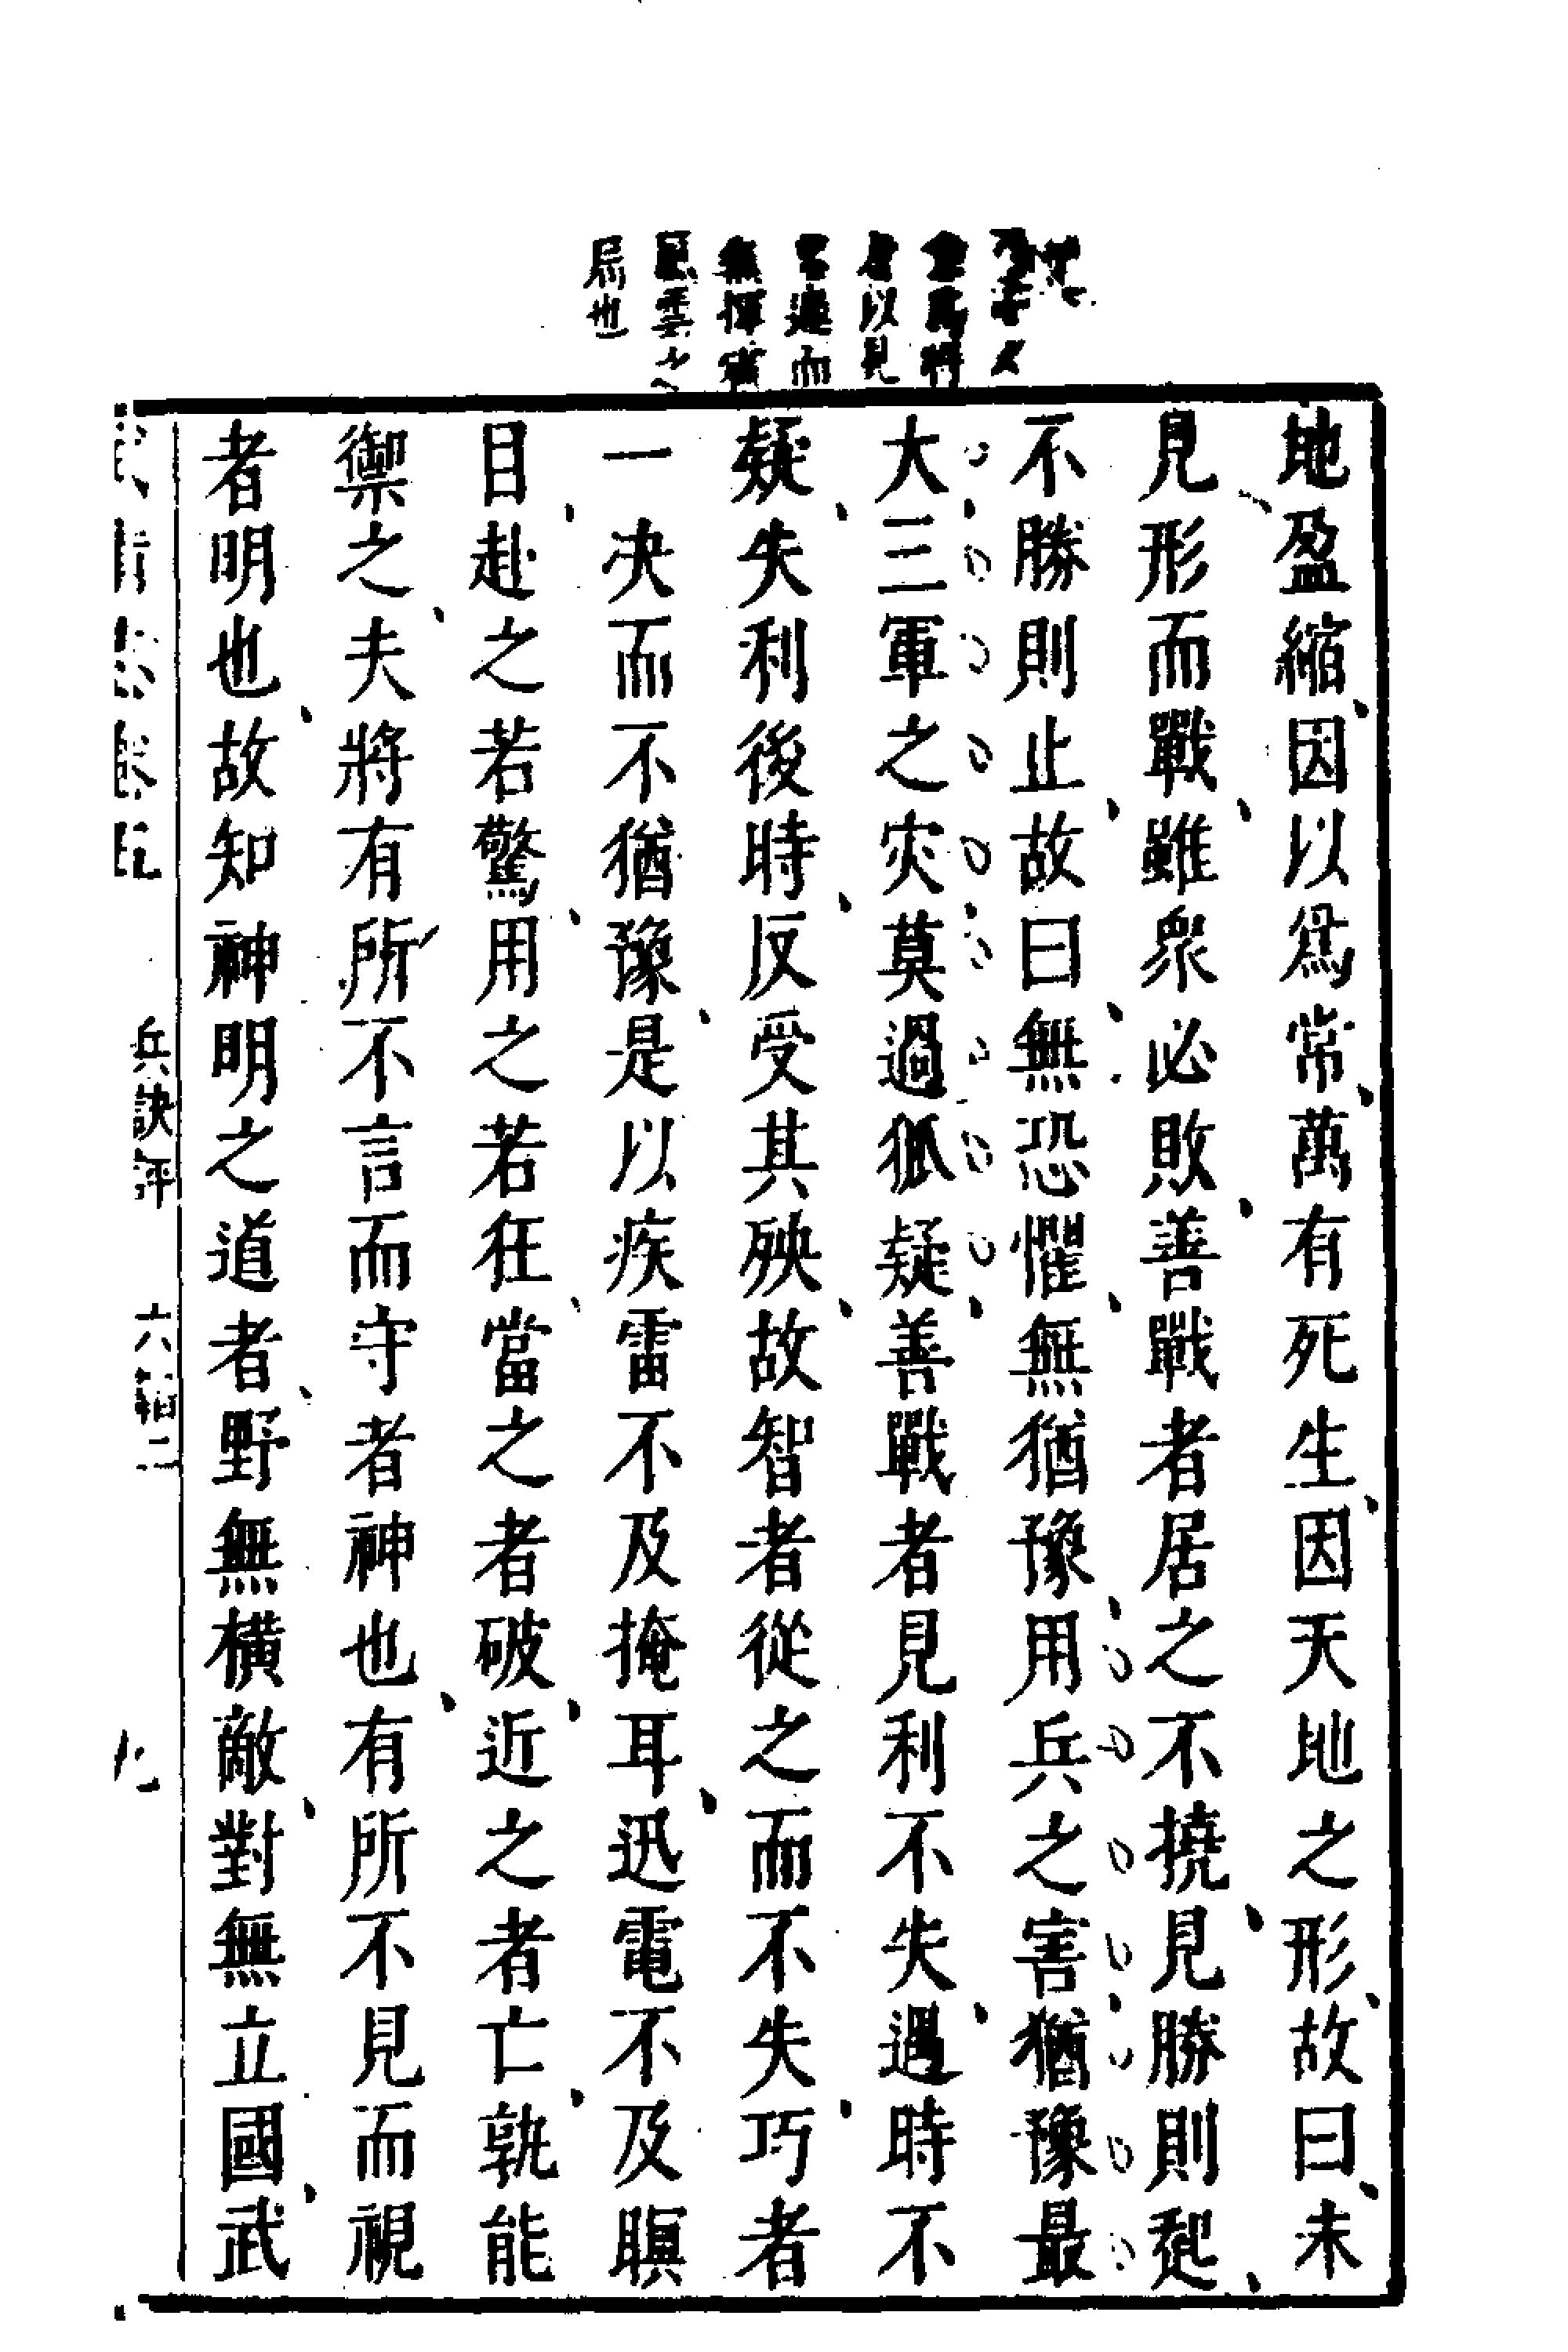 以見
而
無
也
地盈縮因以爲常萬有死生因天地之形故曰未
見形而戰雖衆必敗善戰者居之不撓見勝則起
不勝則止故曰無恐懼無猶豫用兵之害猶豫最
大三軍之灾莫過狐疑善戰者見利不失遇時不
疑失利後時反受其殃故智者從之而不失巧者
一决而不猶豫是以疾雷不及掩耳迅電不及瞑
目赴之若驚用之若狂當之者破近之者亡孰能
禦之夫將有所不言而守者神也有所不見而視
者明也故知神明之道者野無橫敵對無立國武
兵訣評 六韜二
九